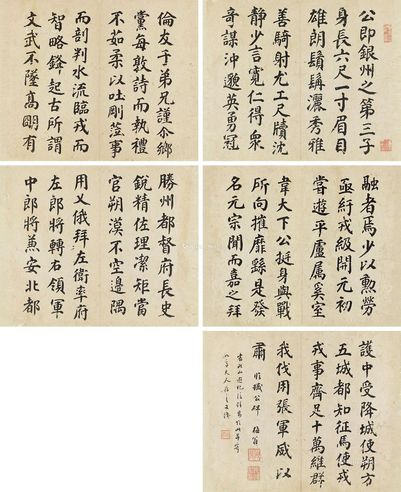 公即銀州之第三子
身長六尺一寸眉目
雄朗鬚髯灑秀雅
善騎射尤工尺牘沈
静少言寬仁得衆
奇謀沖邈英勇冠
倫友于弟兄謹尒鄉
黨每敦詩而執禮
不茹柔以吐剛蒞事
而剖判水流臨戎而
智略鋒起古所謂
文武不墜高朙有
融者焉少以勲勞
亟紆戎級開元初
嘗遊平盧属奚室
韋大下公挺身與戰
所向摧靡繇是發
名元宗聞而嘉之拜
勝州都督府長史
銳精佐理潔矩當
官朔漠不空邊隅
用乂俄拜左衛率府
左郎將轉右領軍
中郎將兼安北都
護中受降城使朔方
五城都知征馬使戎
戎事齊足十萬維群
我伐用張軍威以
肅 臨臧公碑